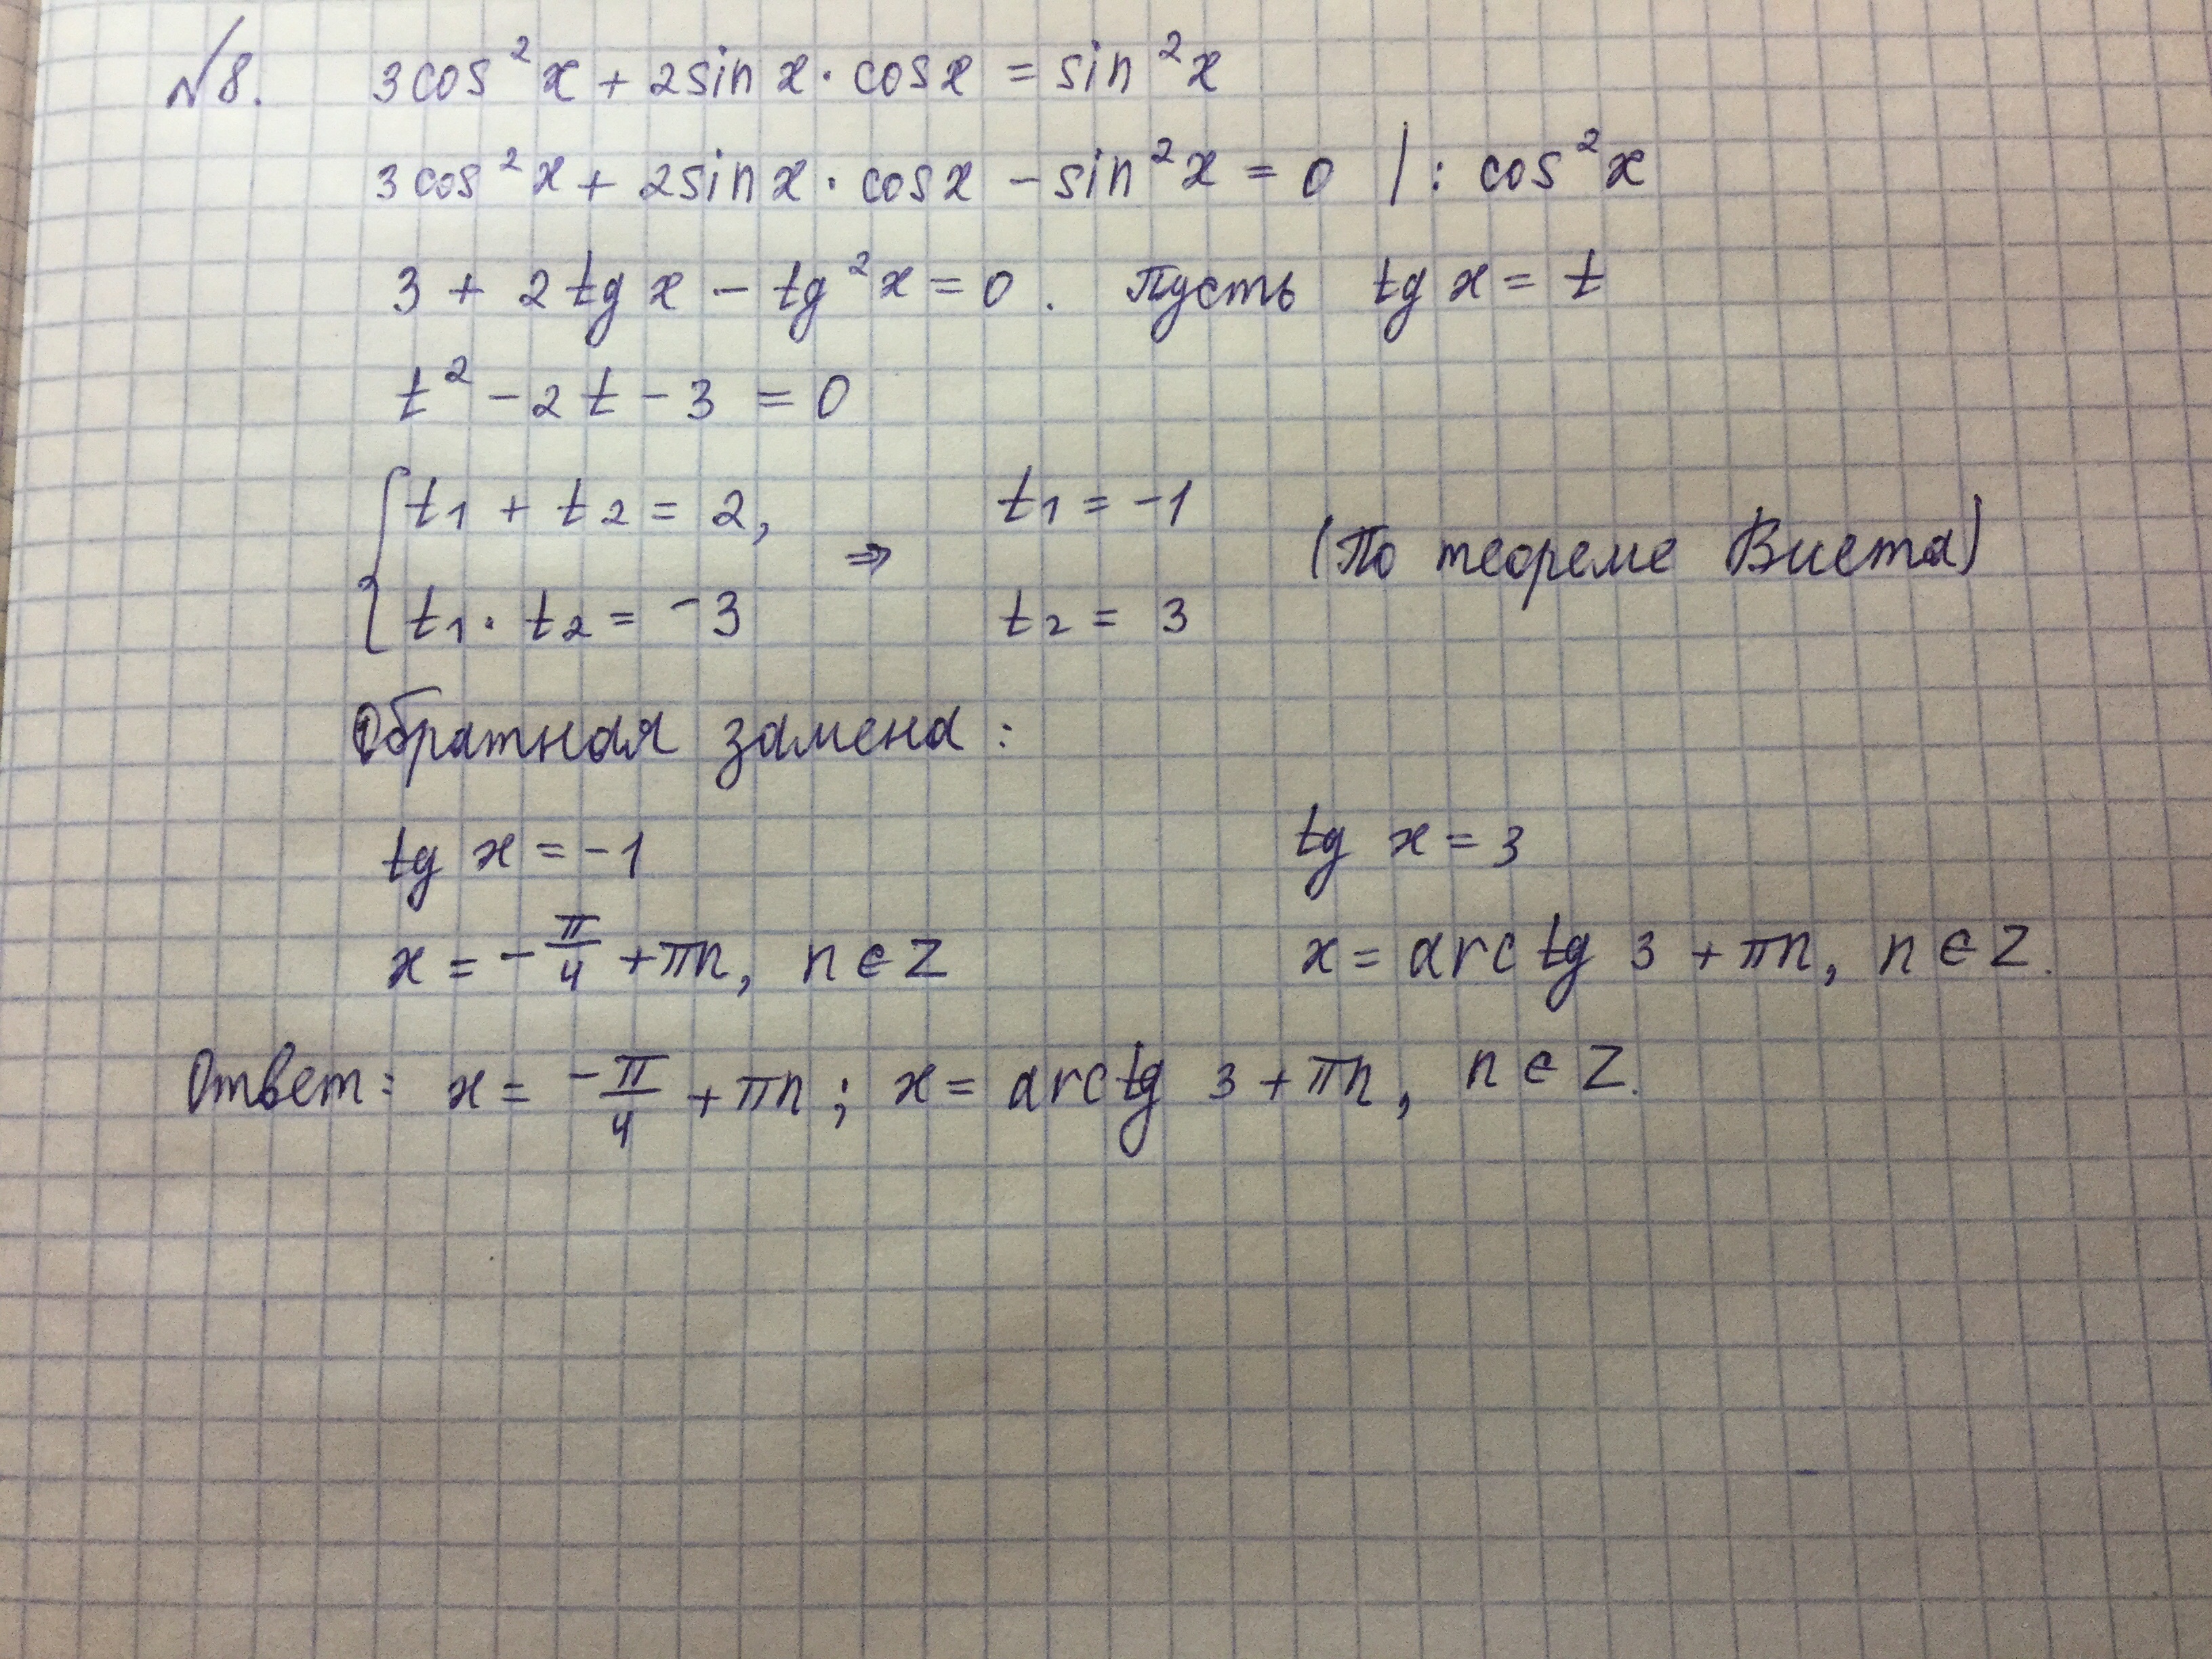 №8. 3cos²x + 2sin x · cosx = sin²x
3cos²x + 2sinx · cosx – sin²x = 0 | : cos²x
3 + 2tg x – tg²x = 0. Пусть tg x = t
t² – 2t – 3 = 0
{ t₁ + t₂ = 2, t₁ = -1
⇒ (По теореме Виета)
t₁ · t₂ = -3 t₂ = 3
Обратная замена:
tg x = -1 tg x = 3
x = -π/4 + πn, n ∈ Z x = arctg 3 + πn, n ∈ Z.
Ответ: x = -π/4 + πn; x = arctg 3 + πn, n ∈ Z.